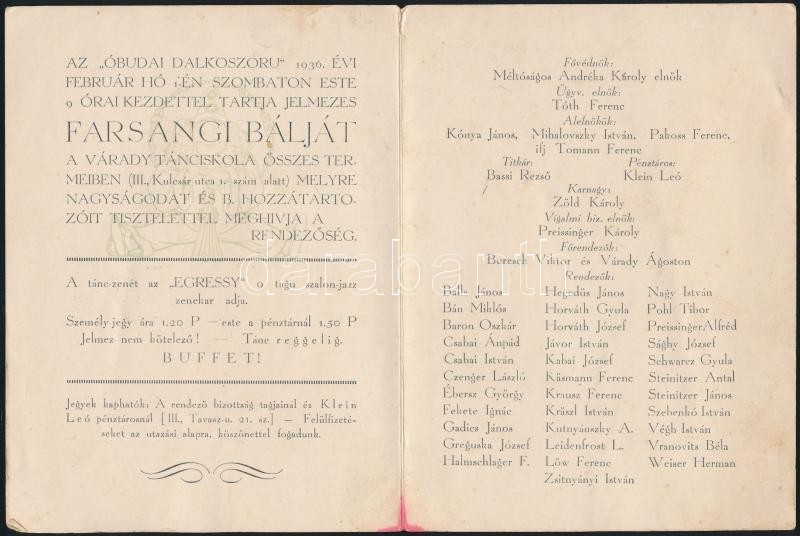 AZ „ÓBUDAI DALKOSZORU“ 1936. ÉVI
FEBRUÁR HÓ 1-ÉN SZOMBATON ESTE
9 ÓRAI KEZDETTEL TARTJA JELMEZES
FARSANGI BÁLJÁT
A VÁRADY TÁNCISKOLA ÖSSZES TER-
MEIBEN (III., Kulcsár utca 1. szám alatt) MELYRE
NAGYSÁGODAT ÉS B. HOZZÁTARTO-
ZÓIT TISZTELETTEL MEGHIVJA A
RENDEZŐSÉG.
A tánc-zenét az „EGRESSY“ 9 tagu szalon-jazz
zenekar adja.
Személy-jegy ára 1.20 P — este a pénztárnál 1.50 P
Jelmez nem kötelező! — Tánc reggelig.
BUFFET!
Jegyek kaphatók: A rendező bizottság tagjainál és Klein
Leó pénztárosnál [III., Tavasz-u. 21. sz.] — Felülfizeté-
seket az utazási alapra, köszönettel fogadunk.
Fővédnök:
Méltóságos Andréka Károly elnök
Ügyv. elnök:
Tóth Ferenc
Alelnökök:
Kónya János, Mihalovszky István, Pakoss Ferenc,
ifj Tomann Ferenc
Titkár: Pénztáros:
Bassi Rezső Klein Leó
Karnagy:
Zöld Károly
Vigalmi biz. elnök:
Preissinger Károly
Főrendezők:
Boresch Viktor és Várady Ágoston
Rendezők:
Balla János Hegedüs János Nagy István
Bán Miklós Horváth Gyula Pohl Tibor
Baron Oszkár Horváth József Preissinger Alfréd
Csabai Ánpád Jávor István Sághy József
Csabai István Kabai József Schwarcz Gyula
Czenger László Käsmann Ferenc Steinitzer Antal
Ébersz György Krausz Ferenc Steinitzer János
Fekete Ignác Krászl István Szebenkó István
Gadics János Kutnyánszky A. Végh István
Greguska József Leidenfrost L. Vranovits Béla
Halmschlager F. Lőw Ferenc Weiser Herman
Zsitnyányi István
darabanth